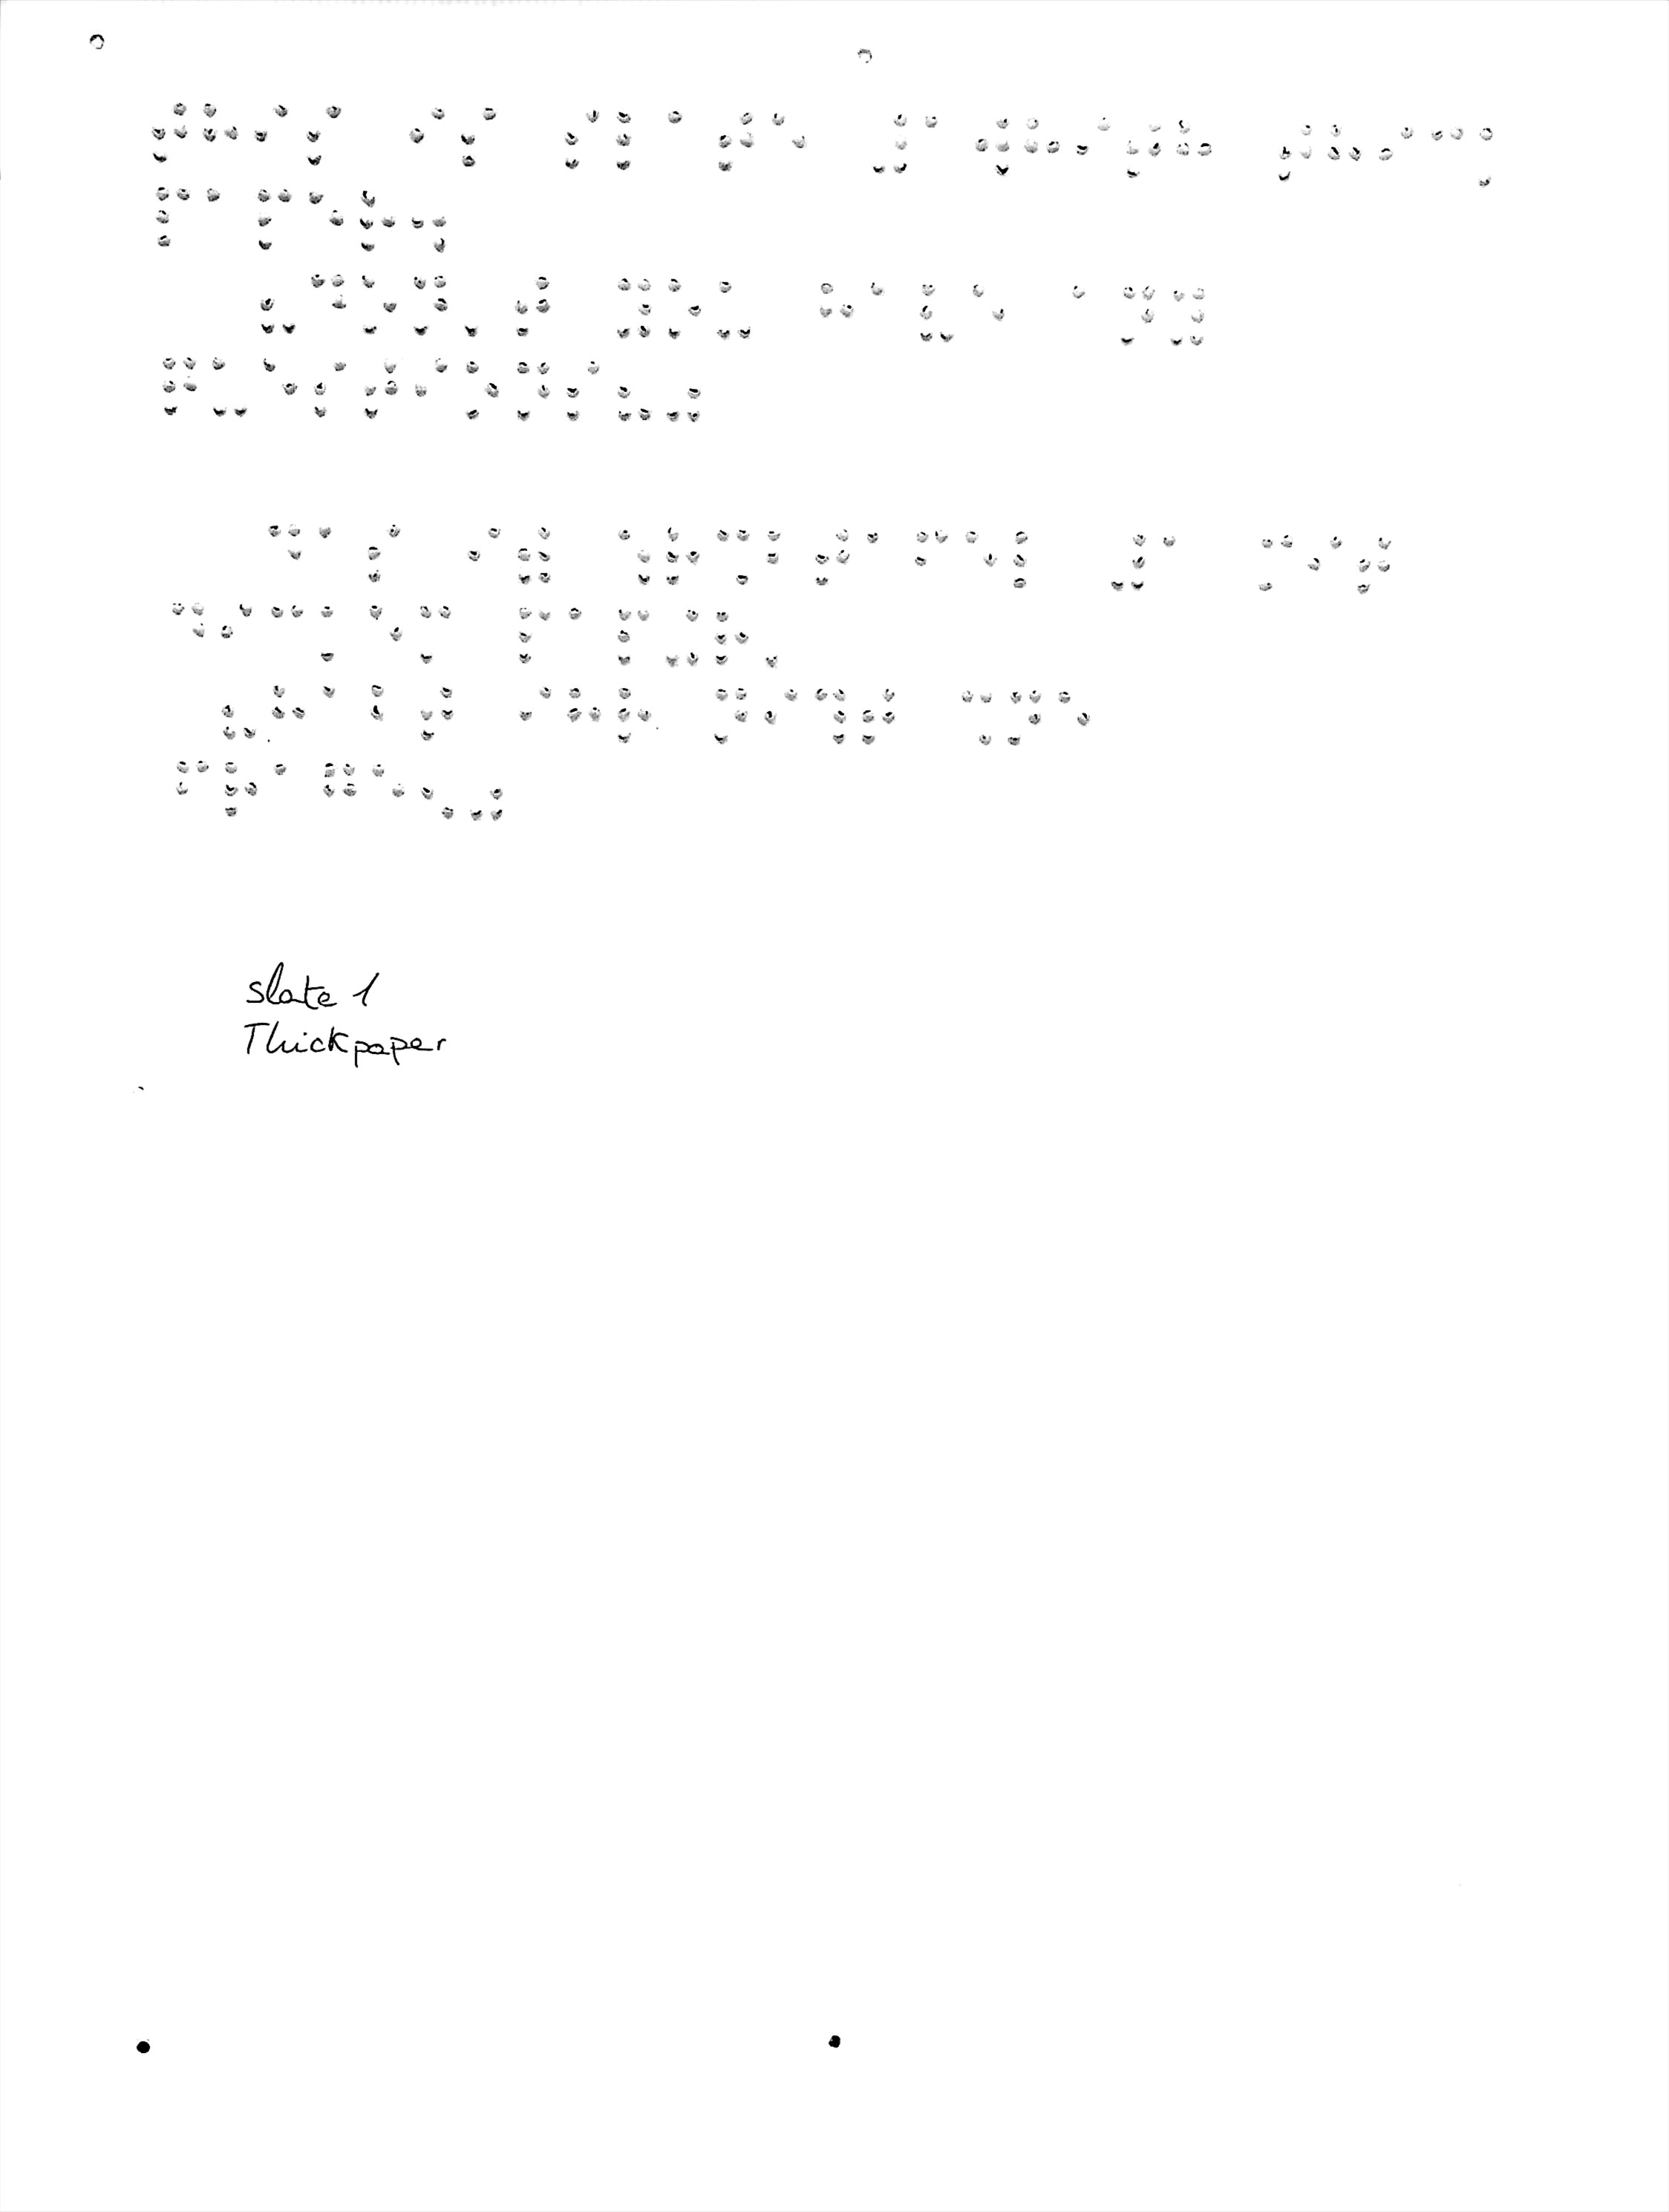 ⠞⠓⠊⠎ ⠊⠎ ⠎⠇⠁⠞⠑ ⠼⠁⠺⠓⠊⠞⠓ ⠞⠓⠊⠉⠅
⠏⠁⠏⠑⠗⠲
⠦⠙⠕⠝⠄⠞ ⠽⠕⠥ ⠓⠁⠧⠑ ⠁⠝⠽
⠟⠥⠑⠎⠞⠊⠕⠝⠎⠦⠴
⠙⠁⠎ ⠊⠾ ⠱⠗⠩⠃⠞⠁⠋⠑⠇ ⠼⠁ ⠍⠊⠞
⠙⠊⠉⠅⠑⠍ ⠏⠁⠏⠬⠗⠄
⠦⠓⠁⠃⠞ ⠊⠓⠗ ⠝⠊⠹⠞ ⠩⠝⠑
⠋⠗⠁⠛⠑⠢⠴
slate 1
Thick paper